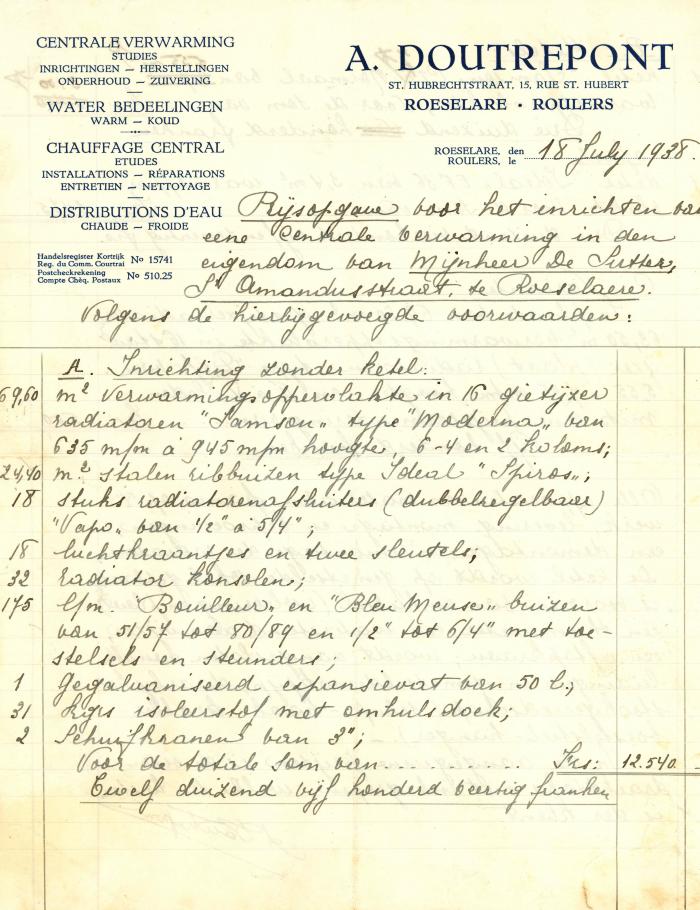 CENTRALE VERWARMING
STUDIES
INRICHTINGEN — HERSTELLINGEN
ONDERHOUD — ZUIVERING
WATER BEDEELINGEN
WARM — KOUD
CHAUFFAGE CENTRAL
ETUDES
INSTALLATIONS — RÉPARATIONS
ENTRETIEN — NETTOYAGE
DISTRIBUTIONS D'EAU
CHAUDE — FROIDE
Handelsregister Kortrijk
Reg. du Comm. Courtrai No 15741
Postcheckrekening
Compte Chèq. Postaux No 510.25
A. DOUTREPONT
ST. HUBRECHTSTRAAT, 15, RUE ST. HUBERT
ROESELARE • ROULERS
ROESELARE, den
ROULERS, le 18 July 1938.
Prijsopgave voor het inrichten van
eene Centrale Verwarming in den
eigendom van Mijnheer De Sutter,
St Amandusstraat, te Roeselaere.
Volgens de hierbijgevoegde voorwaarden:
A. Inrichting zonder ketel:
69,60 m² verwarmingsoppervlakte in 16 gietijzer
radiatoren "Samson" type "Moderna" van
635 m/m à 945 m/m hoogte, 6-4 en 2 koloms;
24,40 m² stalen ribbuizen type Ideal "Spiros";
18 stuks radiatorenafsluiters (dubbelregelbaar)
"Vapo" van 1/2" à 5/4";
18 luchtkraantjes en twee sleutels;
32 radiator konsolen;
175 l/m. "Bouilleur" en "Bleu Meuse" buizen
van 51/57 tot 80/89 en 1/2" tot 6/4" met toe-
stelsels en steunders;
1 gegalvaniseerd expansievat van 50 l.;
31 kgrs isoleerstof met omhulsdoek;
2 Schuifkranen van 3";
Voor de totale som van.......... Frs: 12.540
Twelf duizend vijf honderd veertig franken